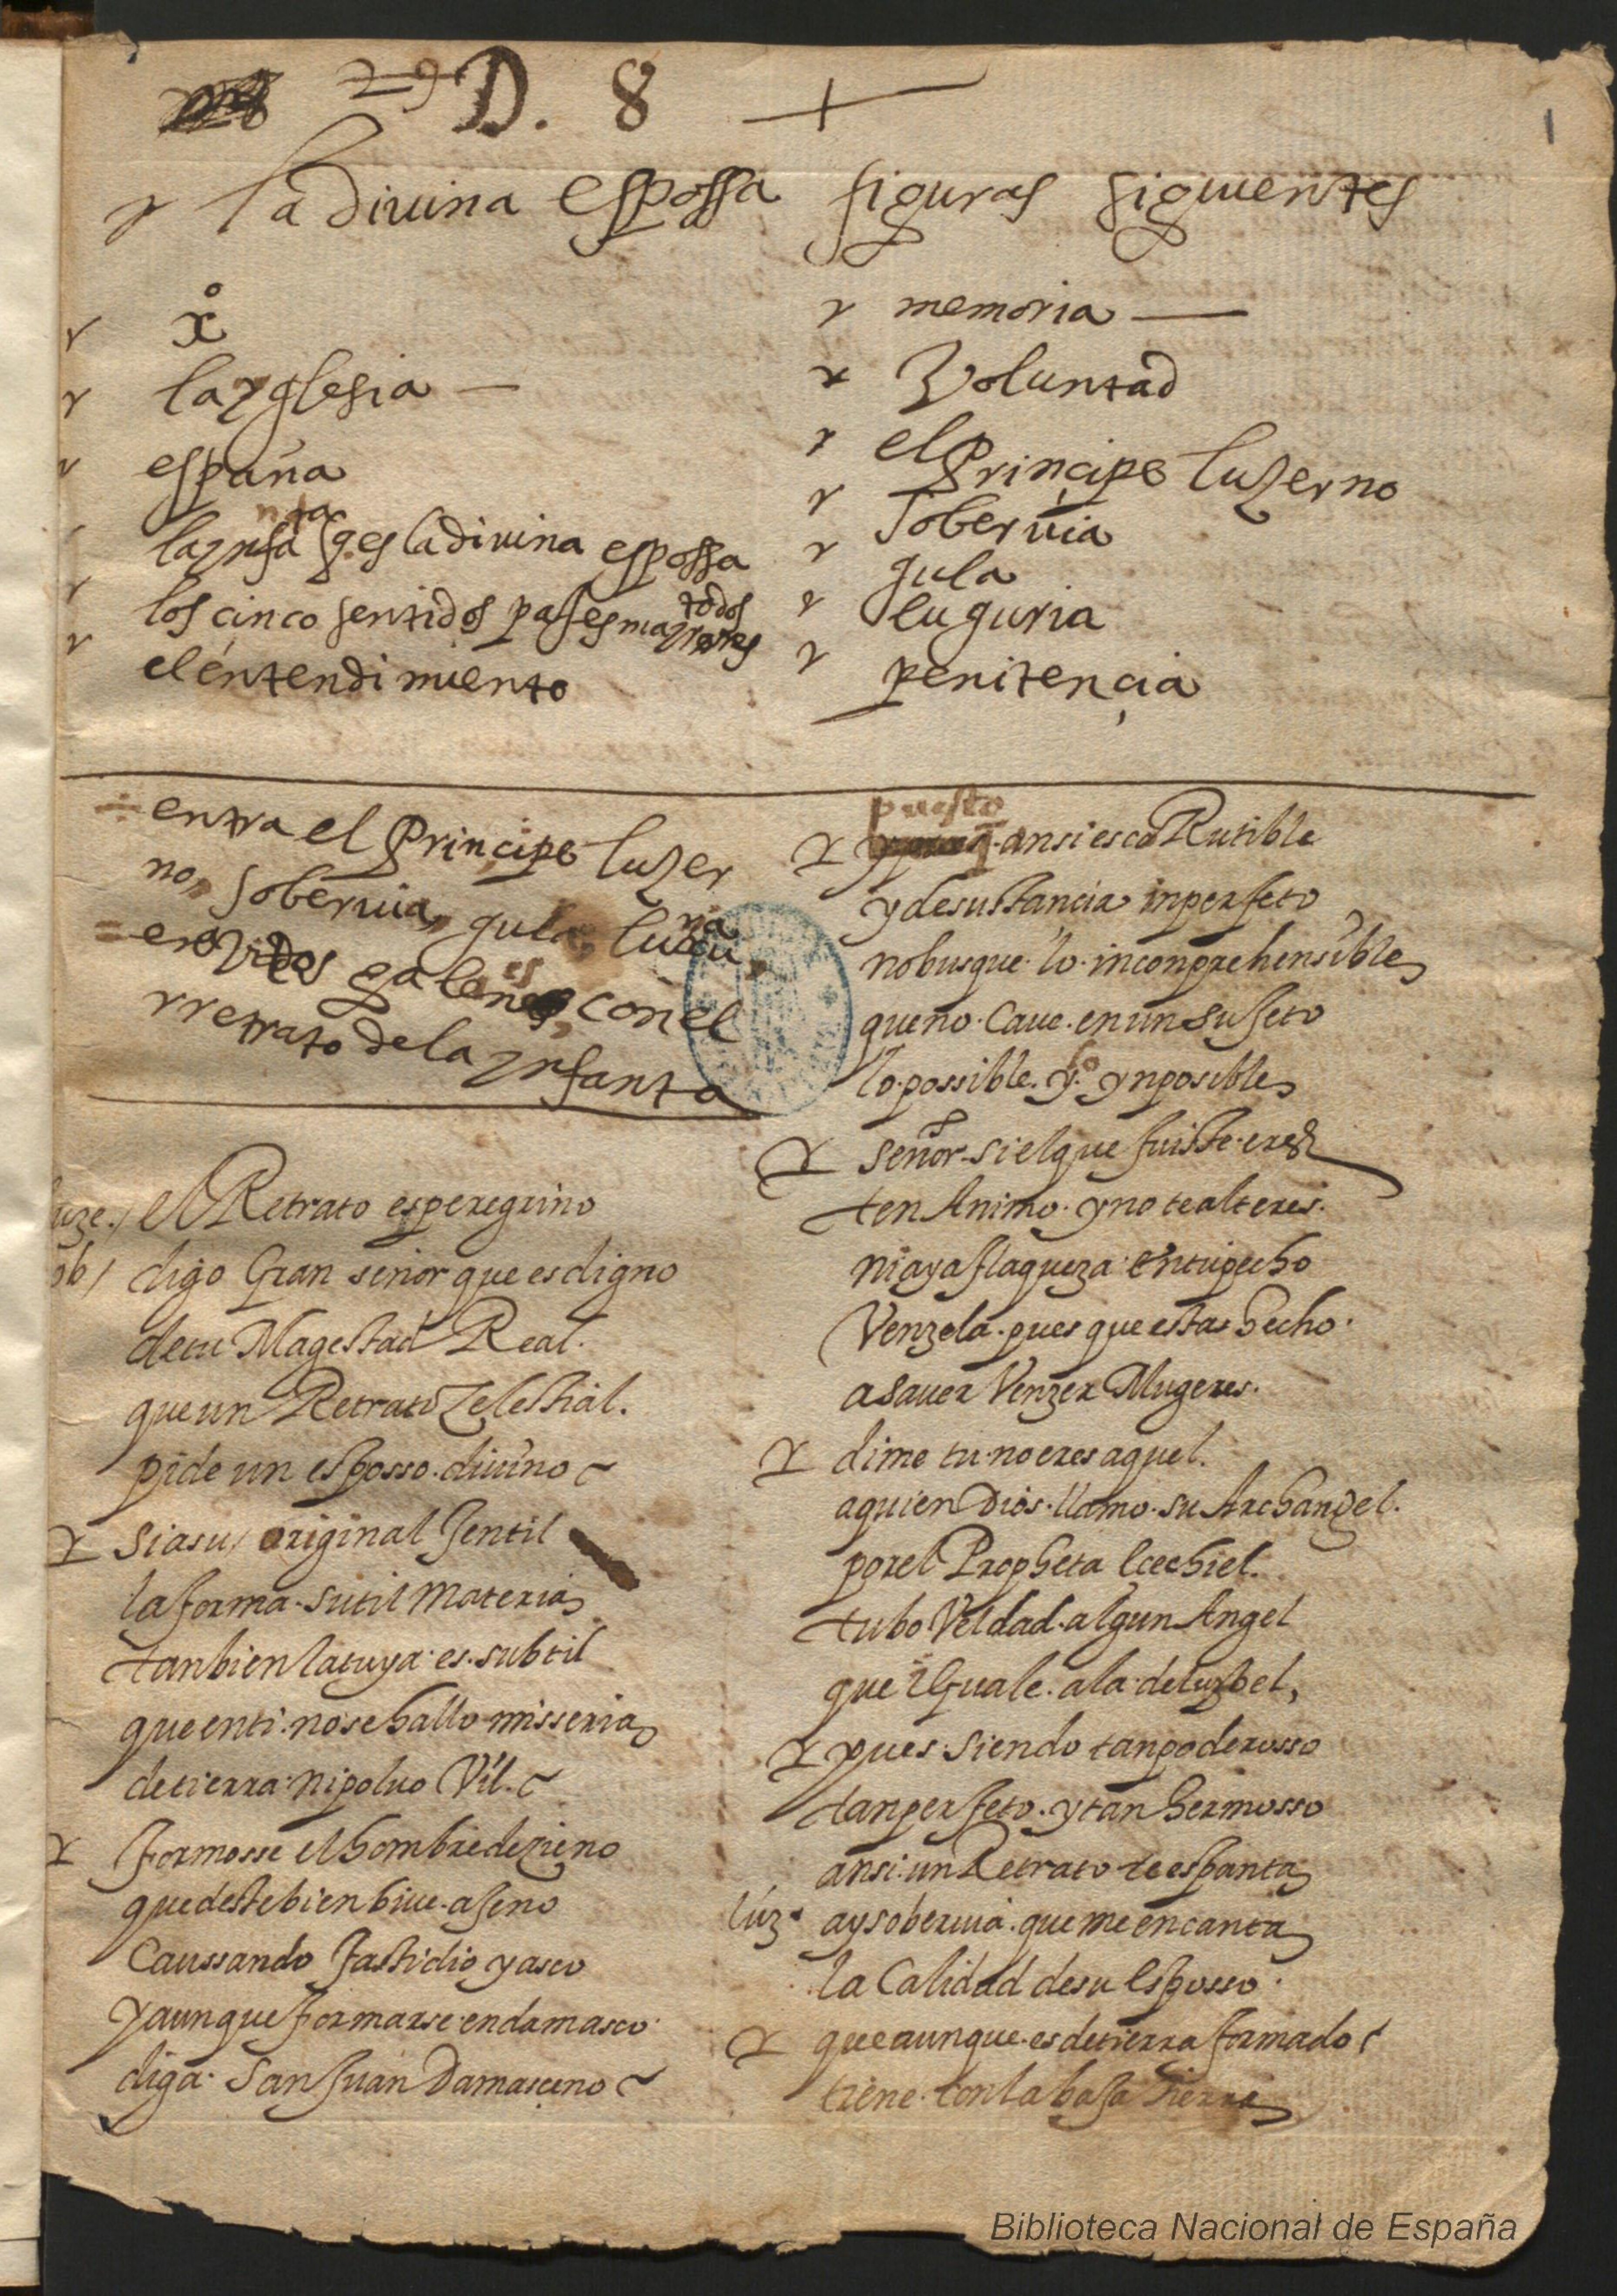 29 D. 8
1
la diuina espossa figuras siguientes
xº
la yglesia
españa
la ynfanta q es la diuina espossa
los cinco sentidos pajes mayores todos
el entendimiento
memoria
Voluntad
el Principe luzerno
soberuia
gula
luguria
penitençia
entra el Principe luzer
no, soberuia, gula, luxuria
en galanes con el
rretrato de la ynfanta
luze. el Retrato es peregrino
sob/ digo Gran señor que es digno
de tu Magestad Real.
que un Retrato Zelestial.
pide un esposso. diuino
si a su original Jentil
la forma. sutil materia
tanbien la tuya. es. subtil
que en ti. no se hallo misseria
de tierra. ni poluo Vil.
formosse el hombre de zieno
que deste bien biue. ajeno
Caussando fastidio y asco
y aunque formarse en damasco
diga. San Juan Damasçeno
puesto q. ansi es coRutible
y de sustancia inperfeto
no busque. lo. inconprehensible
que no. Caue. en un sujeto
lo. possible. y lo ynposible
señor. si el que fuisste. eres
ten Animo. y no te alteres.
ni aya flaqueza. en tu pecho
Venzela. pues que estas hecho.
a sauer Venzer Mugeres.
dime tu. no eres aquel.
a quien Dios. llamo. su Archangel.
por el Propheta Ecechiel.
tubo Veldad. algun Angel
que iGuale. a la. de luzbel,
pues. siendo tan poderosso
tan perfeto. y tan hermosso
ansi. un Retrato te espanta
luz. ay soberuia. que me encanta
la Calidad de su Esposso.
que aunque. es de tierra formado
tiene. con la baja tierra
Biblioteca Nacional de España